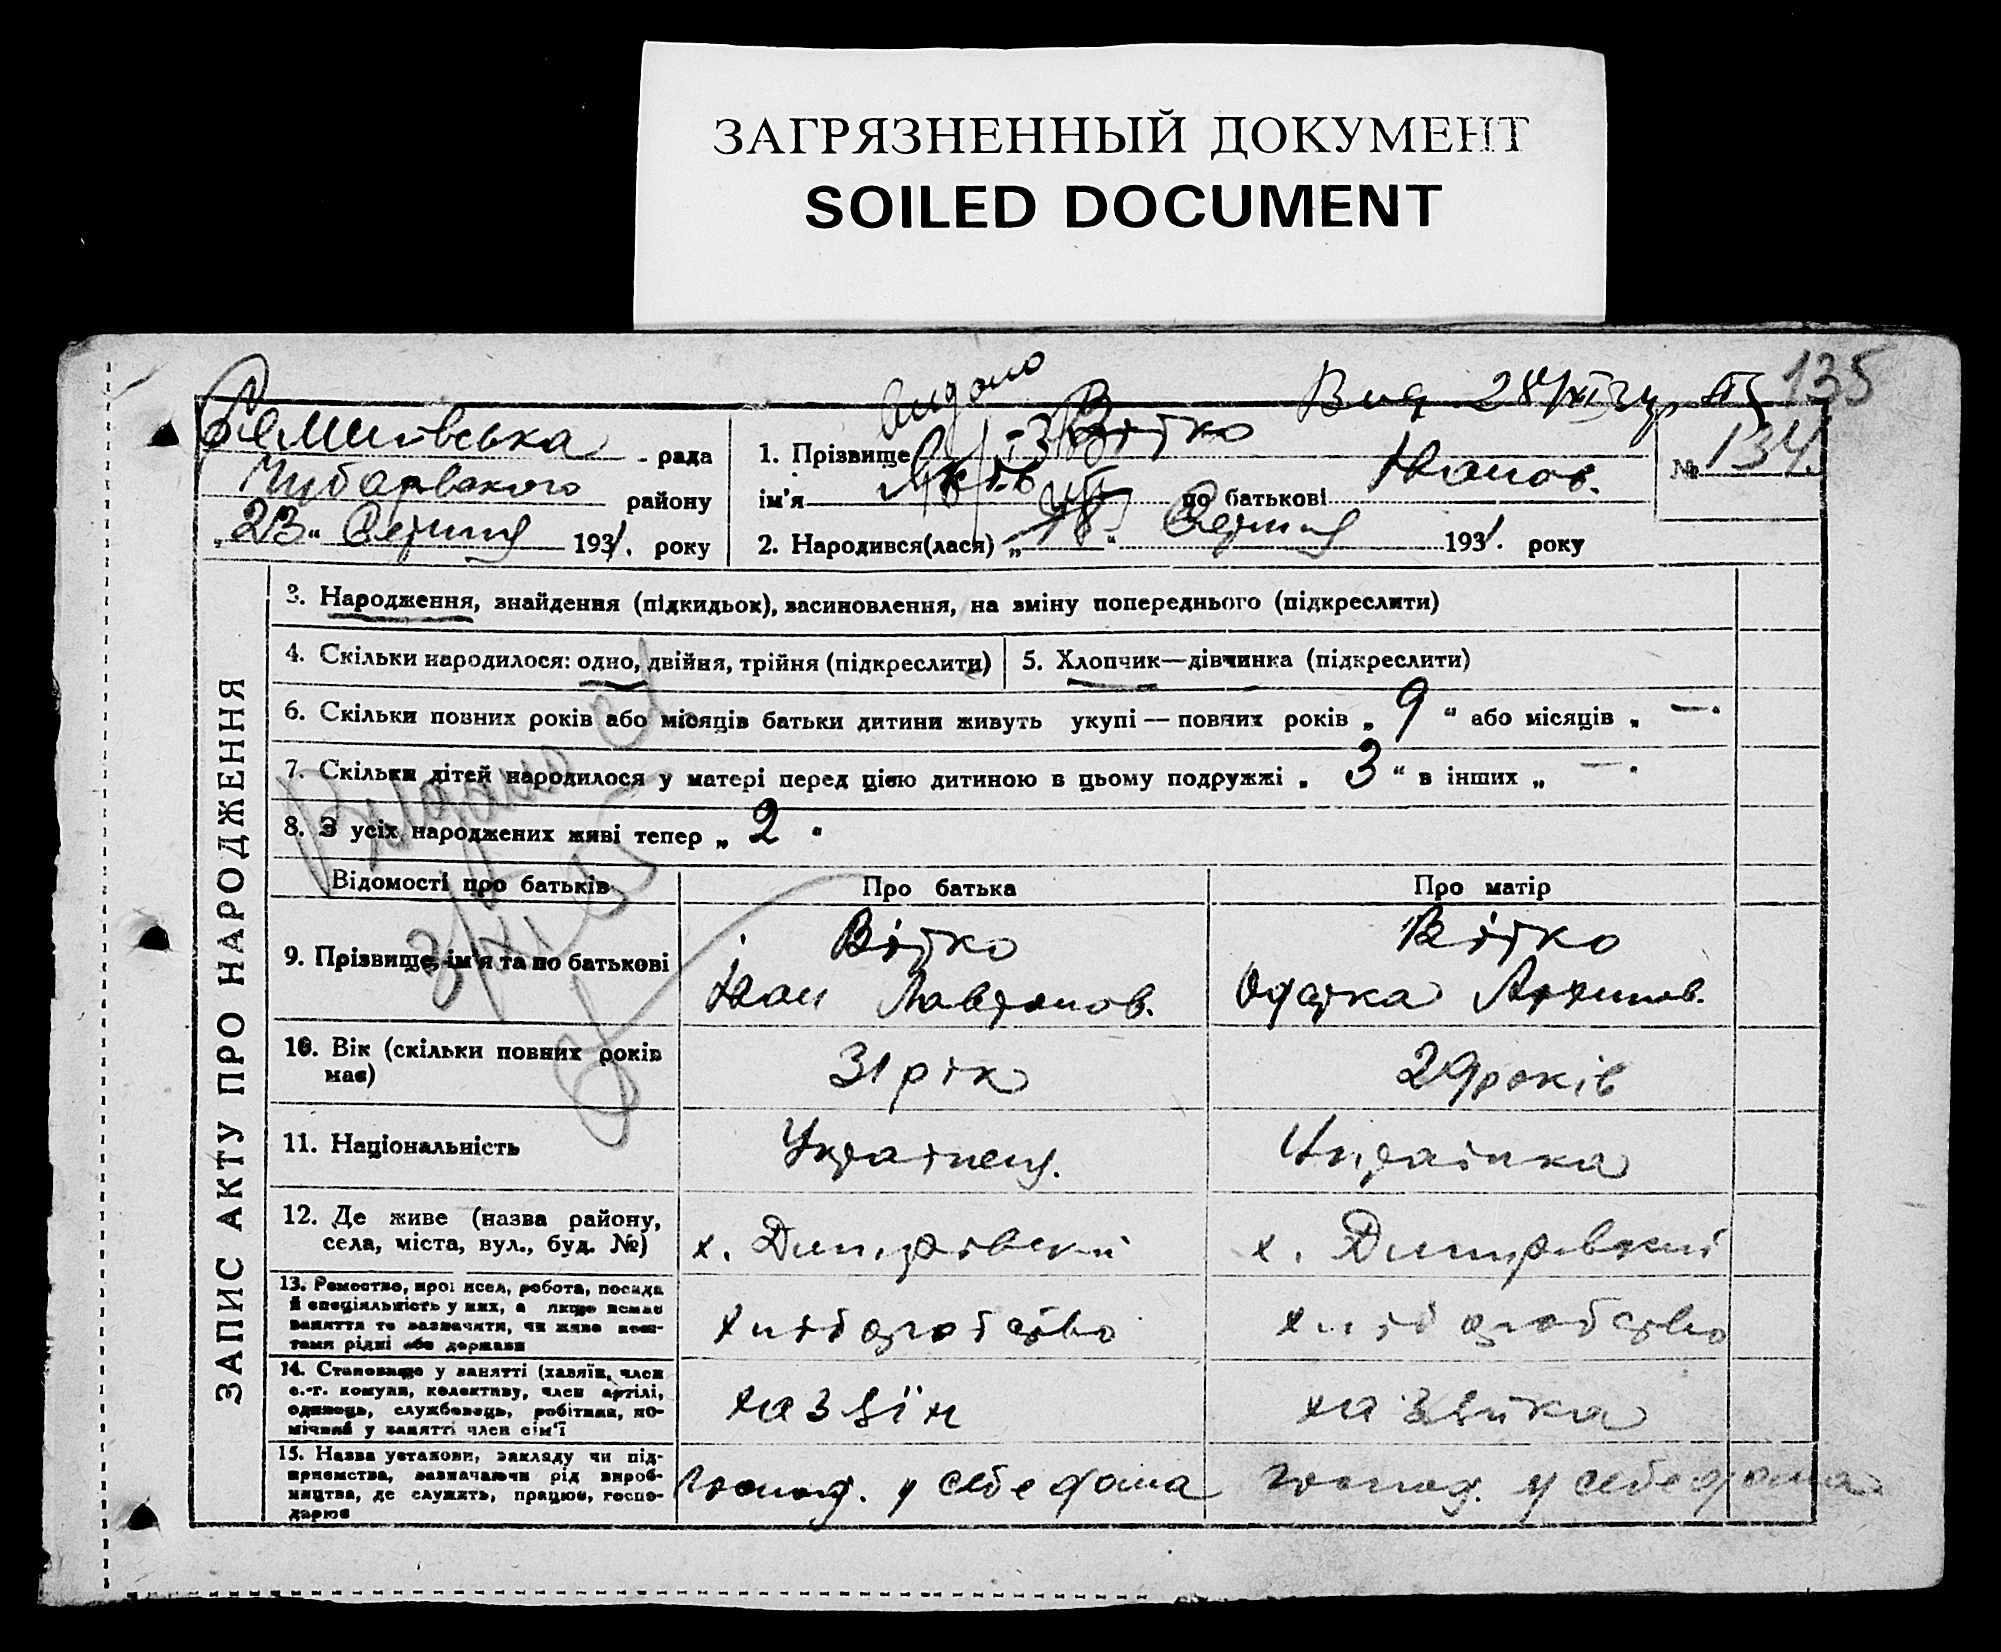 ЗАГРЯЗНЕННЫЙ ДОКУМЕНТ
SOILED DOCUMENT
видано
135
рада
Чубарівського району
„23“ Серпня 1931. року
1. Прізвище Вітко
ім'я по батькові Іванов.
№ 134
2. Народився(лася) „18“ Серпня 1931. року
ЗАПИС АКТУ ПРО НАРОДЖЕННЯ
3. Народження, знайдення (підкидьок), засиновлення, на зміну попереднього (підкреслити)
4. Скільки народилося: одно, двійня, трійня (підкреслити)
5. Хлопчик—дівчинка (підкреслити)
6. Скільки повних років або місяців батьки дитини живуть укупі — повних років „ 9 “ або місяців „ —.
7. Скільки дітей народилося у матері перед цією дитиною в цьому подружжі „ 3 “ в інших „ —.
8. З усіх народжених живі тепер „ 2 “
Видано
Відомості про батьків
Про батька
Про матір
9. Прізвище, ім'я та по батькові
Вітко
Іван Лавронов.
Вітко
Одарка Архипов.
10. Вік (скільки повних років має)
31 рік
29 років
11. Національність
Українець.
Українка
12. Де живе (назва району, села, міста, вул., буд. №)
х. Дмитрівський
х. Дмитрівський
13. Ремество, промисел, робота, посада й спеціяльність у них, а якщо немає заняття то зазначити, чи живе коштами рідні або держави
хліборобство
хліборобство
14. Становище у занятті (хазяїн, член с.-г. комуни, колективу, член артілі, одинець, службовець, робітник, помічний у занятті член сім'ї
хазяїн
хазяйка
15. Назва установи, закладу чи підприємства, зазначаючи рід виробництва, де служить, працює, господарює
господ. у себе дома
господ. у себе дома